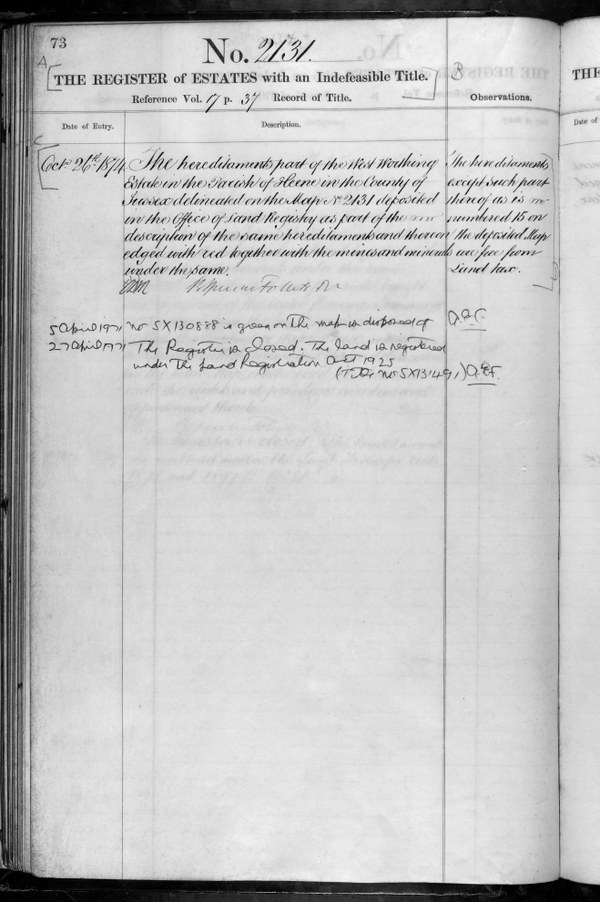 73
No. 2131.
A
THE REGISTER of ESTATES with an Indefeasible Title.
B
Reference Vol. 17 p. 37 Record of Title.
Observations.
Date of Entry.
Description.
C
Octr 26th 1874
The hereditaments part of the West Worthing
Estate in the Parish of Heene in the County of
Sussex delineated on the Map No 2131 deposited
in the Office of Land Registry as part of the
description of the same hereditaments and thereon
edged with red together with the mines and minerals
under the same.
The hereditaments
except such part
thereof as is
numbered 15 on
the deposited Map
are free from
Land tax.
5 April 1971
No SX130888 is green on the map is disposed of
27 April 1971
The Register is closed. The land is registered
under the Land Registration Act 1925
(Title No SX13149,)
THE
Date of